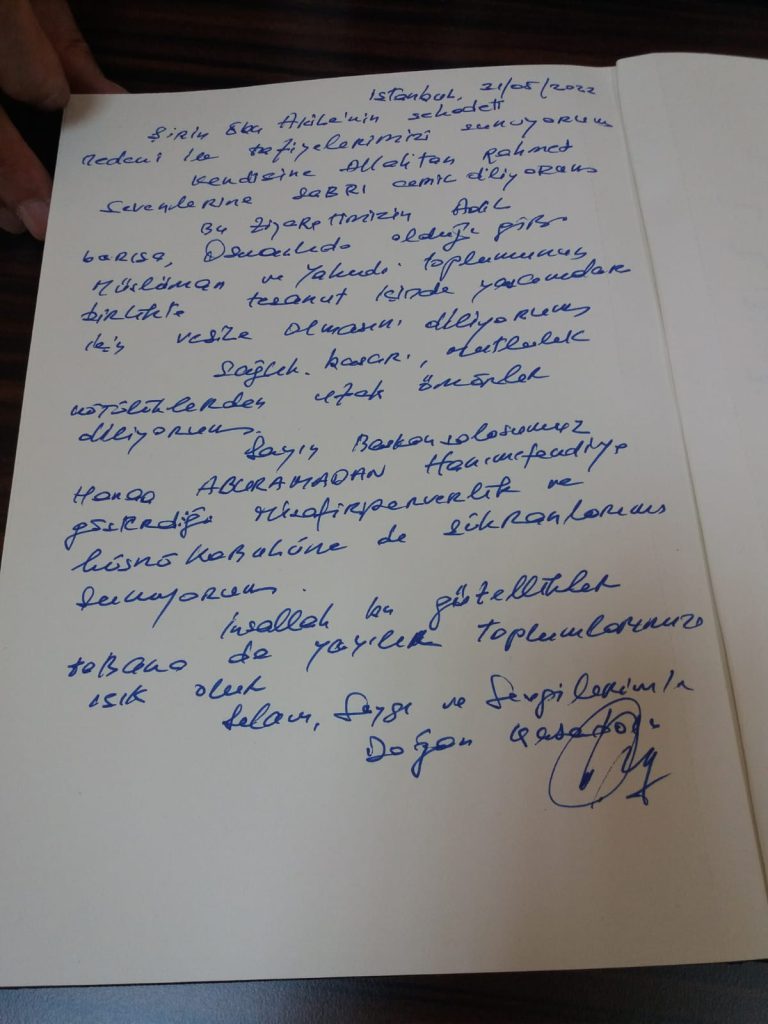 Istanbul, 21/05/2022
Şirin Ebu Akile'nin şehadeti
nedeni ile tafiyelerimizi sunuyorum
Kendisine Allahtan Rahmet
Sevenlerine SABRI cemil diliyorum
Bu ziyaretimizin Adil
barışa, Osmanlıda olduğu gibi
Müslüman ve Yahudi toplumunun
birlikte tesanut içinde yaşamaları
için vesile olmasını diliyorum
Sağlık, başarı, mutluluk
kötülüklerden uzak ömürler
diliyorum.
Sayın Başkonsolosumuz
Hanaa ABURAMADAN Hanımefendiye
gösterdiği misafirperverlik ve
hüsnü kabulüne de şükranlarımı
sunuyorum.
İnşallah bu güzellikler
tabana da yayılır toplumlarımıza
ışık olur
Selam, Saygı ve Sevgilerimle
Doğan